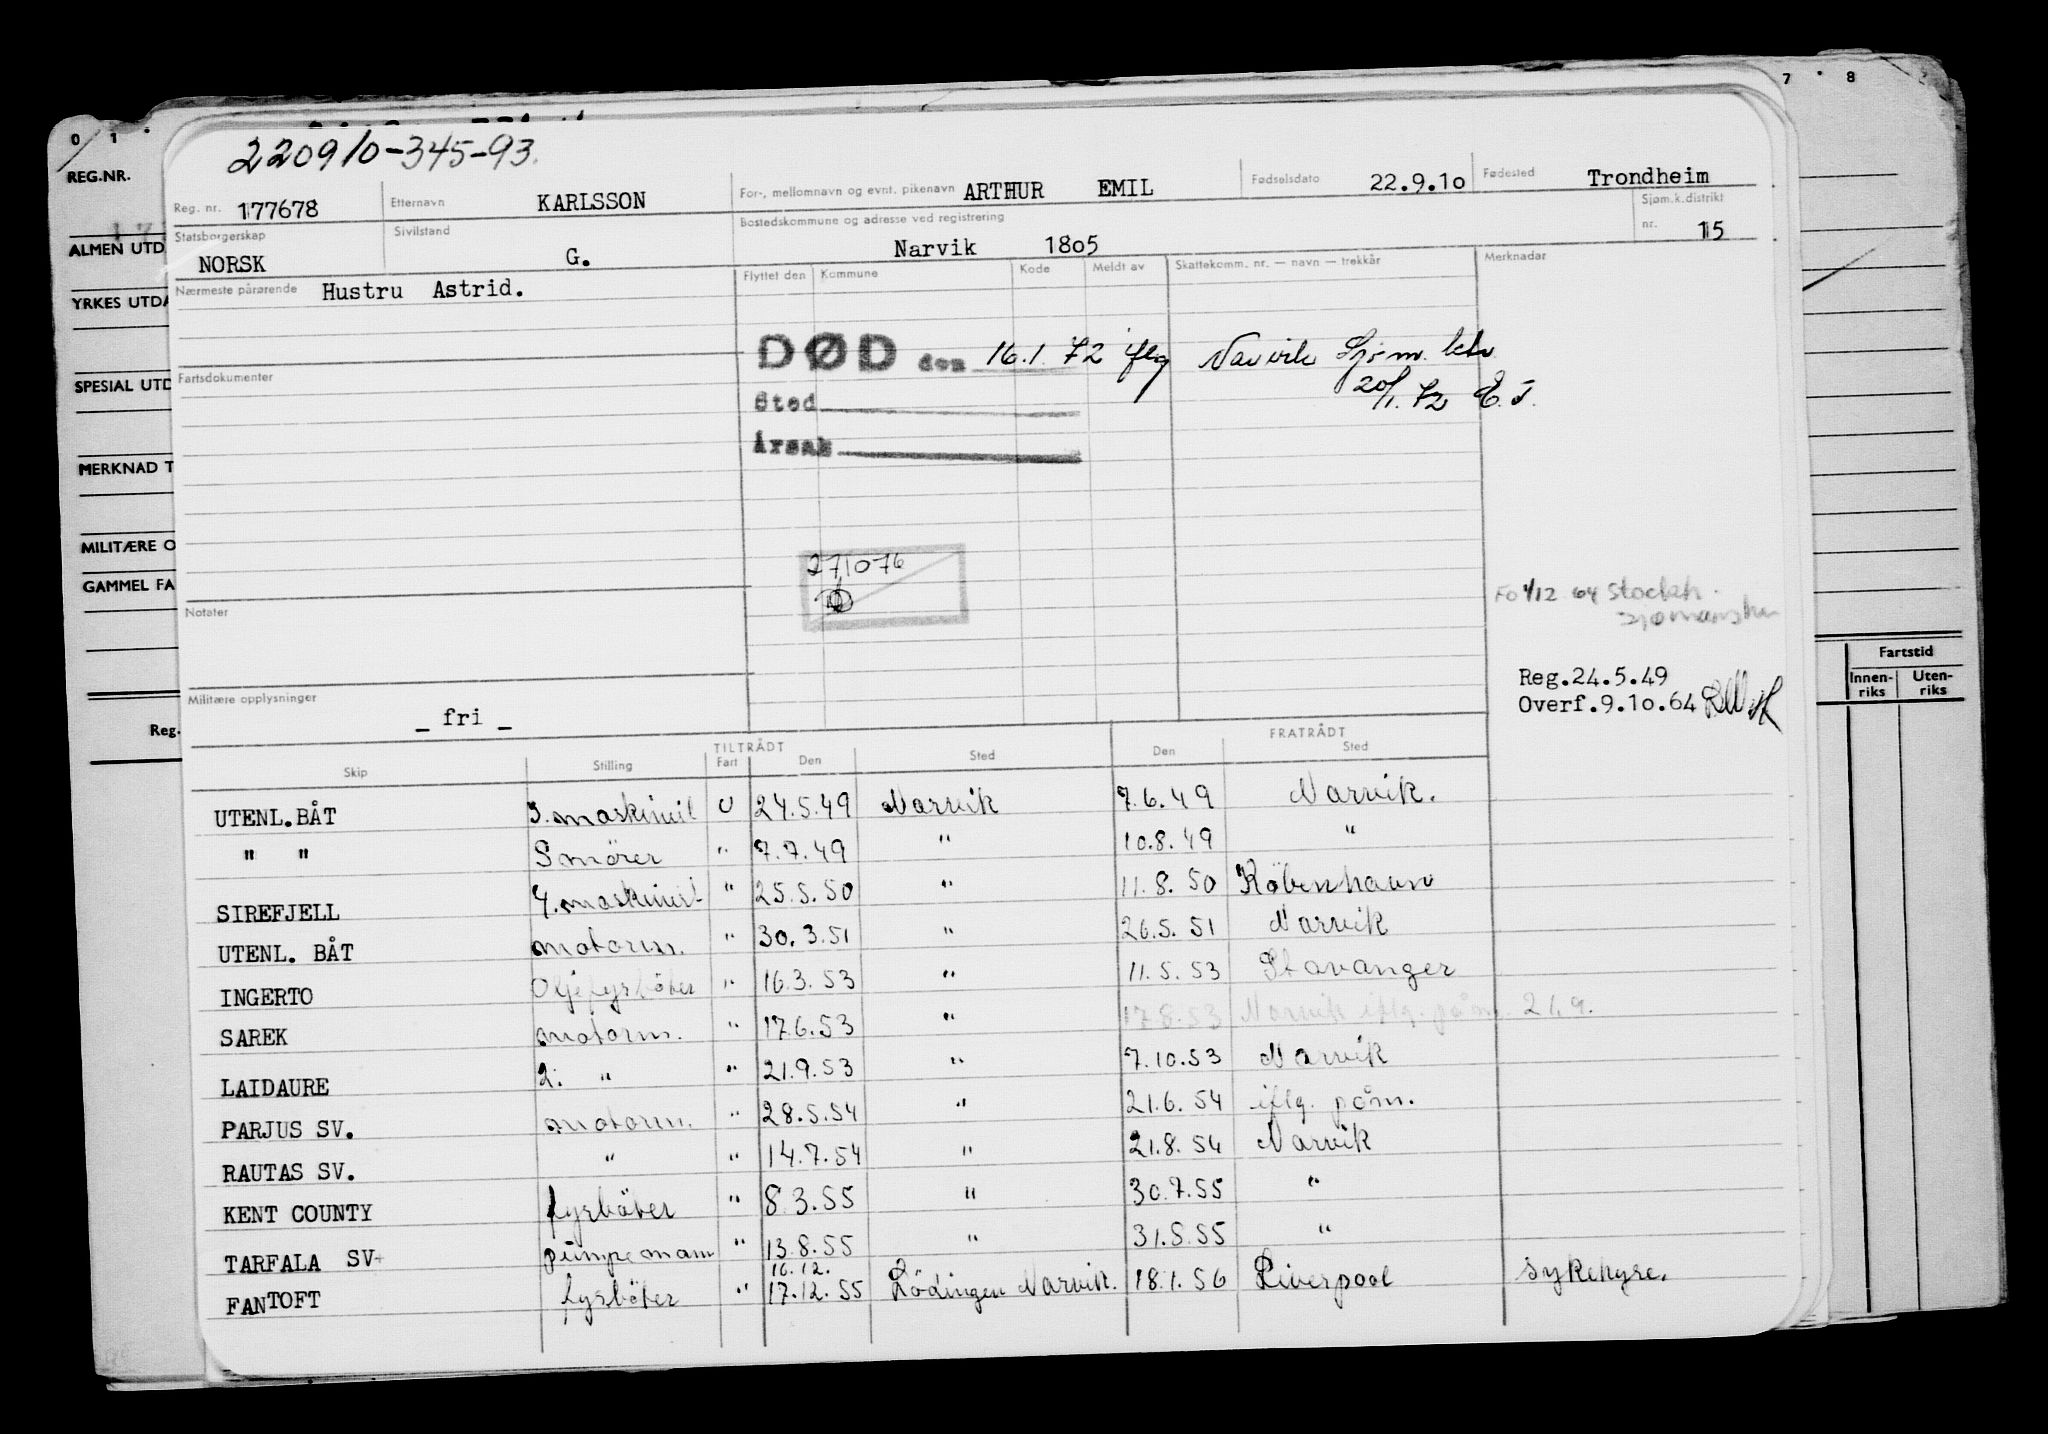 0 1 7 8
REG.NR.
ALMEN UTD
YRKES UTDA
SPESIAL UTD
MERKNAD T
MILITÆRE O
GAMMEL FA
Reg.
Fartstid
Innen-riks Uten-riks
220910-345-93.
Reg. nr. 177678 Etternavn KARLSSON For-, mellomnavn og evnt. pikenavn ARTHUR EMIL Fødselsdato 22.9.1o Fødested Trondheim
Statsborgerskap NORSK Sivilstand G. Bostedskommune og adresse ved registrering Narvik 18o5 Sjøm.k.distrikt nr. 15
Nærmeste pårørende Hustru Astrid. Flyttet den Kommune Kode Meldt av Skattekomm. nr. — navn — trekkår Merknadar
DØD den 16.1.72 iflg Narvik Sjøm.
20/1.72 E.J.
Sted
Årsak
Fartsdokumenter
271076
Notater
Fo 1/12 64 Stockh.
Militære opplysninger
_ fri _
Reg.24.5.49
Overf.9.1o.64
TILTRÅDT FRATRÅDT
Skip Stilling Fart Den Sted Den Sted
UTENL.BÅT 3.maskinist U 24.5.49 Narvik 7.6.49 Narvik.
" " Smörer " 7.7.49 " 10.8.49 "
SIREFJELL 4.maskinist " 25.5.50 " 11.8.50 Köbenhavn
UTENL. BÅT motorm. " 30.3.51 " 26.5.51 Narvik
INGERTO Oljefyrböter " 16.3.53 " 11.5.53 Stavanger
SAREK motorm. " 17.6.53 " 17.8.53 Narvik iflg. påm. 21.9.
LAIDAURE 2. " " 21.9.53 " 7.10.53 Narvik
PARJUS SV. motorm. " 28.5.54 " 21.6.54 iflg. påm.
RAUTAS SV. " " 14.7.54 " 21.8.54 Narvik
KENT COUNTY fyrböter " 8.3.55 " 30.7.55 "
TARFALA SV. pumpemann " 13.8.55 " 31.8.55 "
FANTOFT fyrböter " 16.12. 17.12.55 Lödingen Narvik. 18.1.56 Liverpool sykehyre.